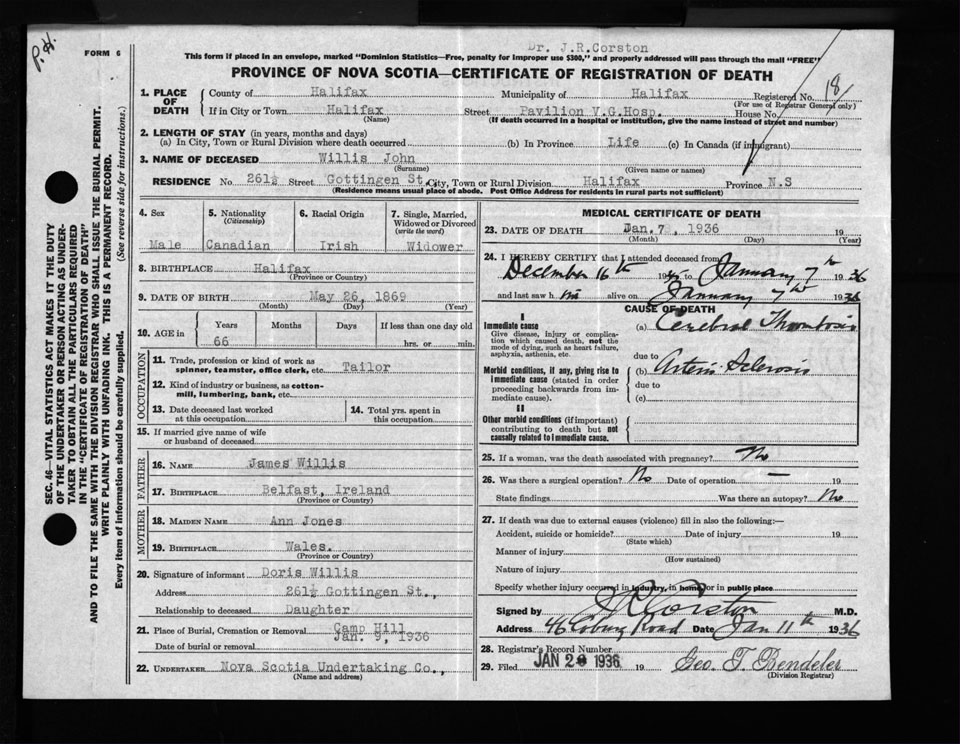 P.H.
FORM 6
Dr. J.R.Corston
This form if placed in an envelope, marked "Dominion Statistics—Free, penalty for improper use $300," and properly addressed will pass through the mail "FREE"
PROVINCE OF NOVA SCOTIA—CERTIFICATE OF REGISTRATION OF DEATH
1. PLACE OF DEATH
County of Halifax Municipality of Halifax Registered No. 18
(For use of Registrar General only)
If in City or Town Halifax Street Pavilion V.G.Hosp. House No.
(Name) (If death occurred in a hospital or institution, give the name instead of street and number)
2. LENGTH OF STAY (in years, months and days)
(a) In City, Town or Rural Division where death occurred (b) In Province Life (c) In Canada (if immigrant)
3. NAME OF DECEASED Willis John
(Surname) (Given name or names)
RESIDENCE No. 261½ Street Gottingen St. City, Town or Rural Division Halifax Province N.S
(Residence means usual place of abode. Post Office Address for residents in rural parts not sufficient)
4. Sex
Male
5. Nationality
(Citizenship)
Canadian
6. Racial Origin
Irish
7. Single, Married, Widowed or Divorced
(write the word)
Widower
8. BIRTHPLACE Halifax
(Province or Country)
9. DATE OF BIRTH May 26, 1869
(Month) (Day) (Year)
10. AGE in Years Months Days If less than one day old
66 hrs. or min.
OCCUPATION
11. Trade, profession or kind of work as spinner, teamster, office clerk, etc. Tailor
12. Kind of industry or business, as cotton-mill, lumbering, bank, etc.
13. Date deceased last worked at this occupation
14. Total yrs. spent in this occupation
15. If married give name of wife or husband of deceased
FATHER
16. NAME James Willis
17. BIRTHPLACE Belfast, Ireland
(Province or Country)
MOTHER
18. MAIDEN NAME Ann Jones
19. BIRTHPLACE Wales.
(Province or Country)
20. Signature of informant Doris Willis
Address 261½ Gottingen St.,
Relationship to deceased Daughter
21. Place of Burial, Cremation or Removal Camp Hill
Date of burial or removal Jan. 9, 1936
22. UNDERTAKER Nova Scotia Undertaking Co.,
(Name and address)
MEDICAL CERTIFICATE OF DEATH
23. DATE OF DEATH Jan. 7, 1936 19
(Month) (Day) (Year)
24. I HEREBY CERTIFY that I attended deceased from
December 16th 1935 to January 7th 1936
and last saw him alive on January 7th 1936
CAUSE OF DEATH
I
Immediate cause
Give disease, injury or complication which caused death, not the mode of dying, such as heart failure, asphyxia, asthenia, etc.
(a) Cerebral Thrombosis
due to
Morbid conditions, if any, giving rise to immediate cause (stated in order proceeding backwards from immediate cause).
(b) Arterio Sclerosis
due to
(c)
II
Other morbid conditions (if important) contributing to death but not causally related to immediate cause.
25. If a woman, was the death associated with pregnancy? No
26. Was there a surgical operation? No Date of operation — 19
State findings Was there an autopsy? No
27. If death was due to external causes (violence) fill in also the following:—
Accident, suicide or homicide? Date of injury 19
(State which)
Manner of injury
(How sustained)
Nature of injury
Specify whether injury occurred in industry, in home, or in public place
Signed by J R Corston M.D.
Address 46 Coburg Road Date Jan 11th 1936
28. Registrar's Record Number
29. Filed JAN 20 1936 19 Geo. T. Bendeler
(Division Registrar)
SEC. 46—VITAL STATISTICS ACT MAKES IT THE DUTY
OF THE UNDERTAKER OR PERSON ACTING AS UNDER-
TAKER TO OBTAIN ALL THE PARTICULARS REQUIRED
IN THE "CERTIFICATE OF REGISTRATION OF DEATH"
AND TO FILE THE SAME WITH THE DIVISION REGISTRAR WHO SHALL ISSUE THE BURIAL PERMIT.
WRITE PLAINLY WITH UNFADING INK. THIS IS A PERMANENT RECORD.
Every item of information should be carefully supplied. (See reverse side for instructions.)